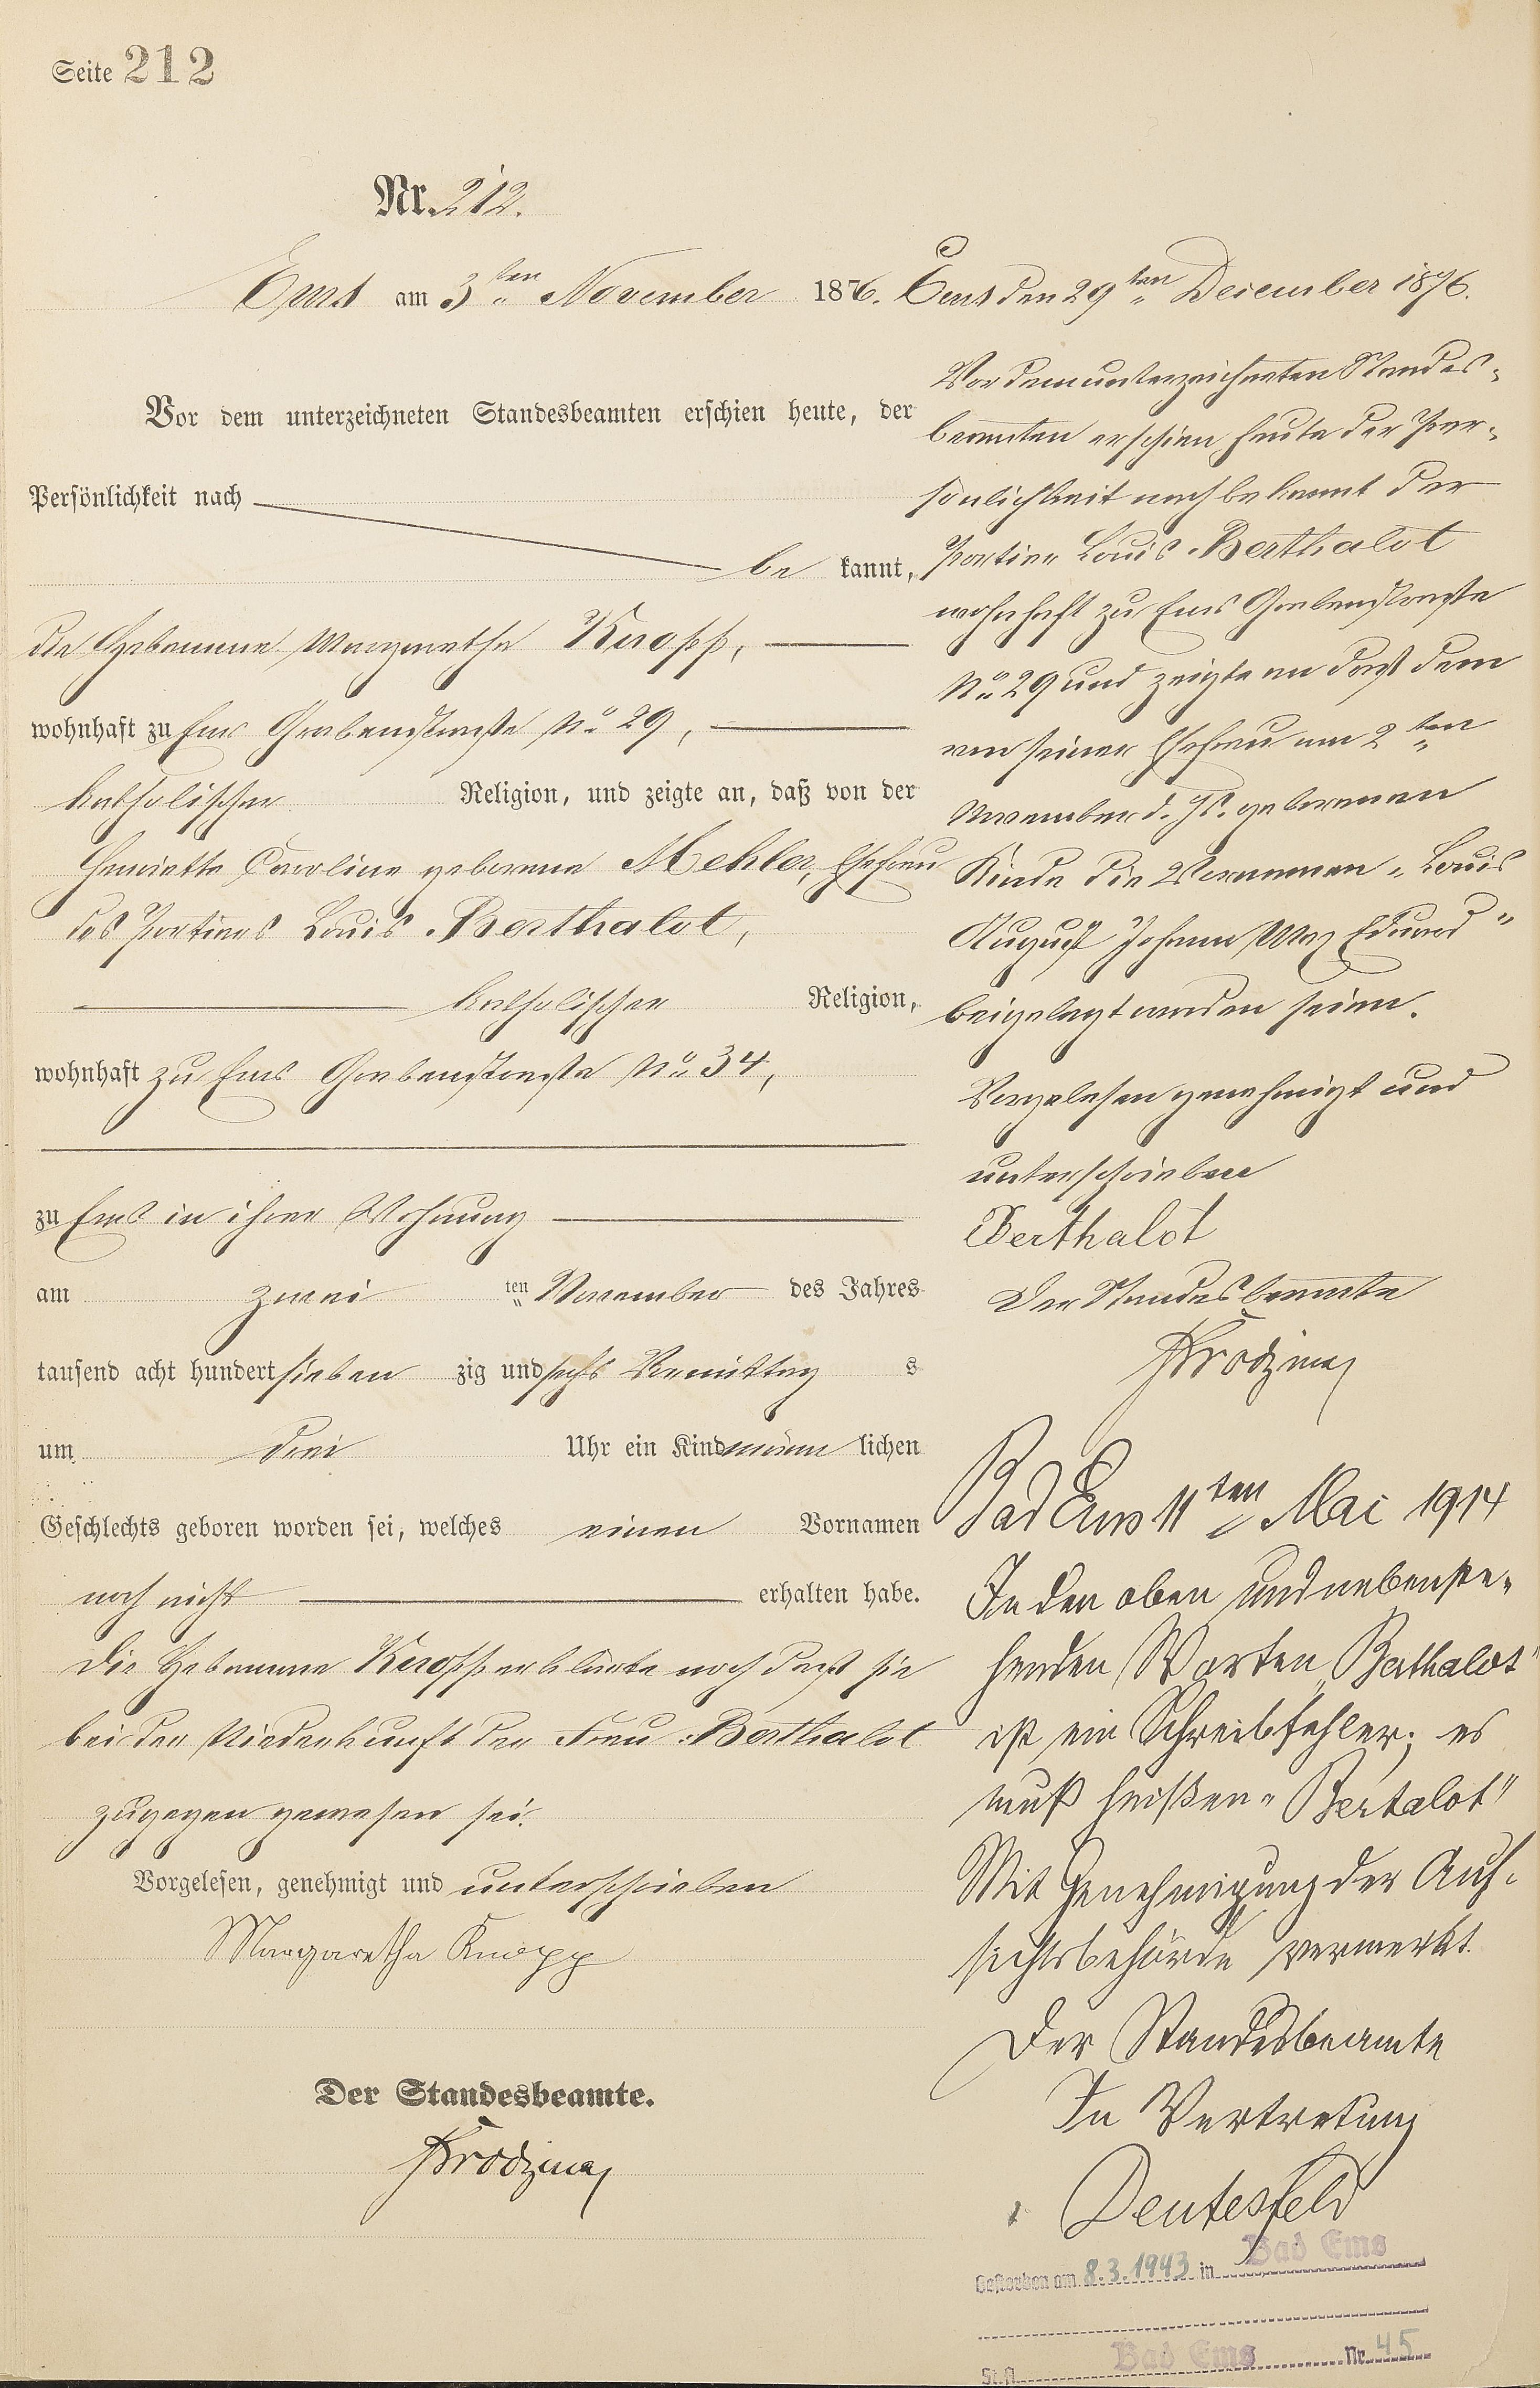 Seite 212
Nr. 212.
Ems am 3ten November 1876.
Vor dem unterzeichneten Standesbeamten erschien heute, der
Persönlichkeit nach
be kannt,
die Hebamme Margaretha Knopp,
wohnhaft zu Ems Grabenstraße No 29,
katholischer Religion, und zeigte an, daß von der
Henriette Caroline geborene Mehler, Ehefrau
des Portiers Louis Berthalot,
katholischer Religion,
wohnhaft zu Ems Grabenstraße No 34,
zu Ems in ihrer Wohnung
am zwei ten November des Jahres
tausend acht hundert sieben zig und sechs Vormittag s
um drei Uhr ein Kind männ lichen
Geschlechts geboren worden sei, welches einen Vornamen
noch nicht erhalten habe.
Die Hebamme Knopp erklärte noch daß sie
bei der Niederkunft der Frau Berthalot
zugegen gewesen sei.
Vorgelesen, genehmigt und unterschrieben
Margaretha Knopp
Der Standesbeamte.
Ems den 29ten December 1876.
Vor dem unterzeichneten Standes-
beamten erschien heute der Per-
sönlichkeit nach bekannt der
Portier Louis Berthalot
wohnhaft zu Ems Grabenstraße
No 29 und zeigte an daß dem
von seiner Ehefrau am 2ten
November d. Js. geborenen
Kinde die Vornamen „Louis
August Johann Max Eduard"
beigelegt worden seien.
Vorgelesen genehmigt und
unterschrieben
Berthalot
Der Standesbeamte
Bad Ems 11ten Mai 1914
In den oben und nebenste-
henden Worten „Berthalot"
ist ein Schreibfehler; es
muß heißen „Bertalot"
Mit Genehmigung der Auf-
sichtsbehörde vermerkt.
Der Standesbeamte
In Vertretung
Deutesfeld
Gestorben am 8.3.1943 in Bad Ems
St.A. Bad Ems Nr. 45